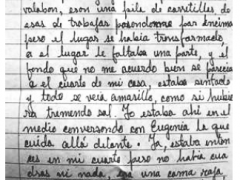 valabon, eran una fila de carretilles de
esas de trabajar pasandome por encima
pero el lugar se había transformado
a el lugar le faltaba una parte, y el
fondo que no me acuerdo bien se parecía
a el cuarto de mi casa, estaba sentado
y todo se veía amarillo, como si hubie
ra tremendo sal. Yo estaba ahí en el
medio conversando con Eugenia la que
cuida allá delante. Ya, estaba enton
ces en mi cuarto pero no había cua
dras ni nada, era una cama roja,